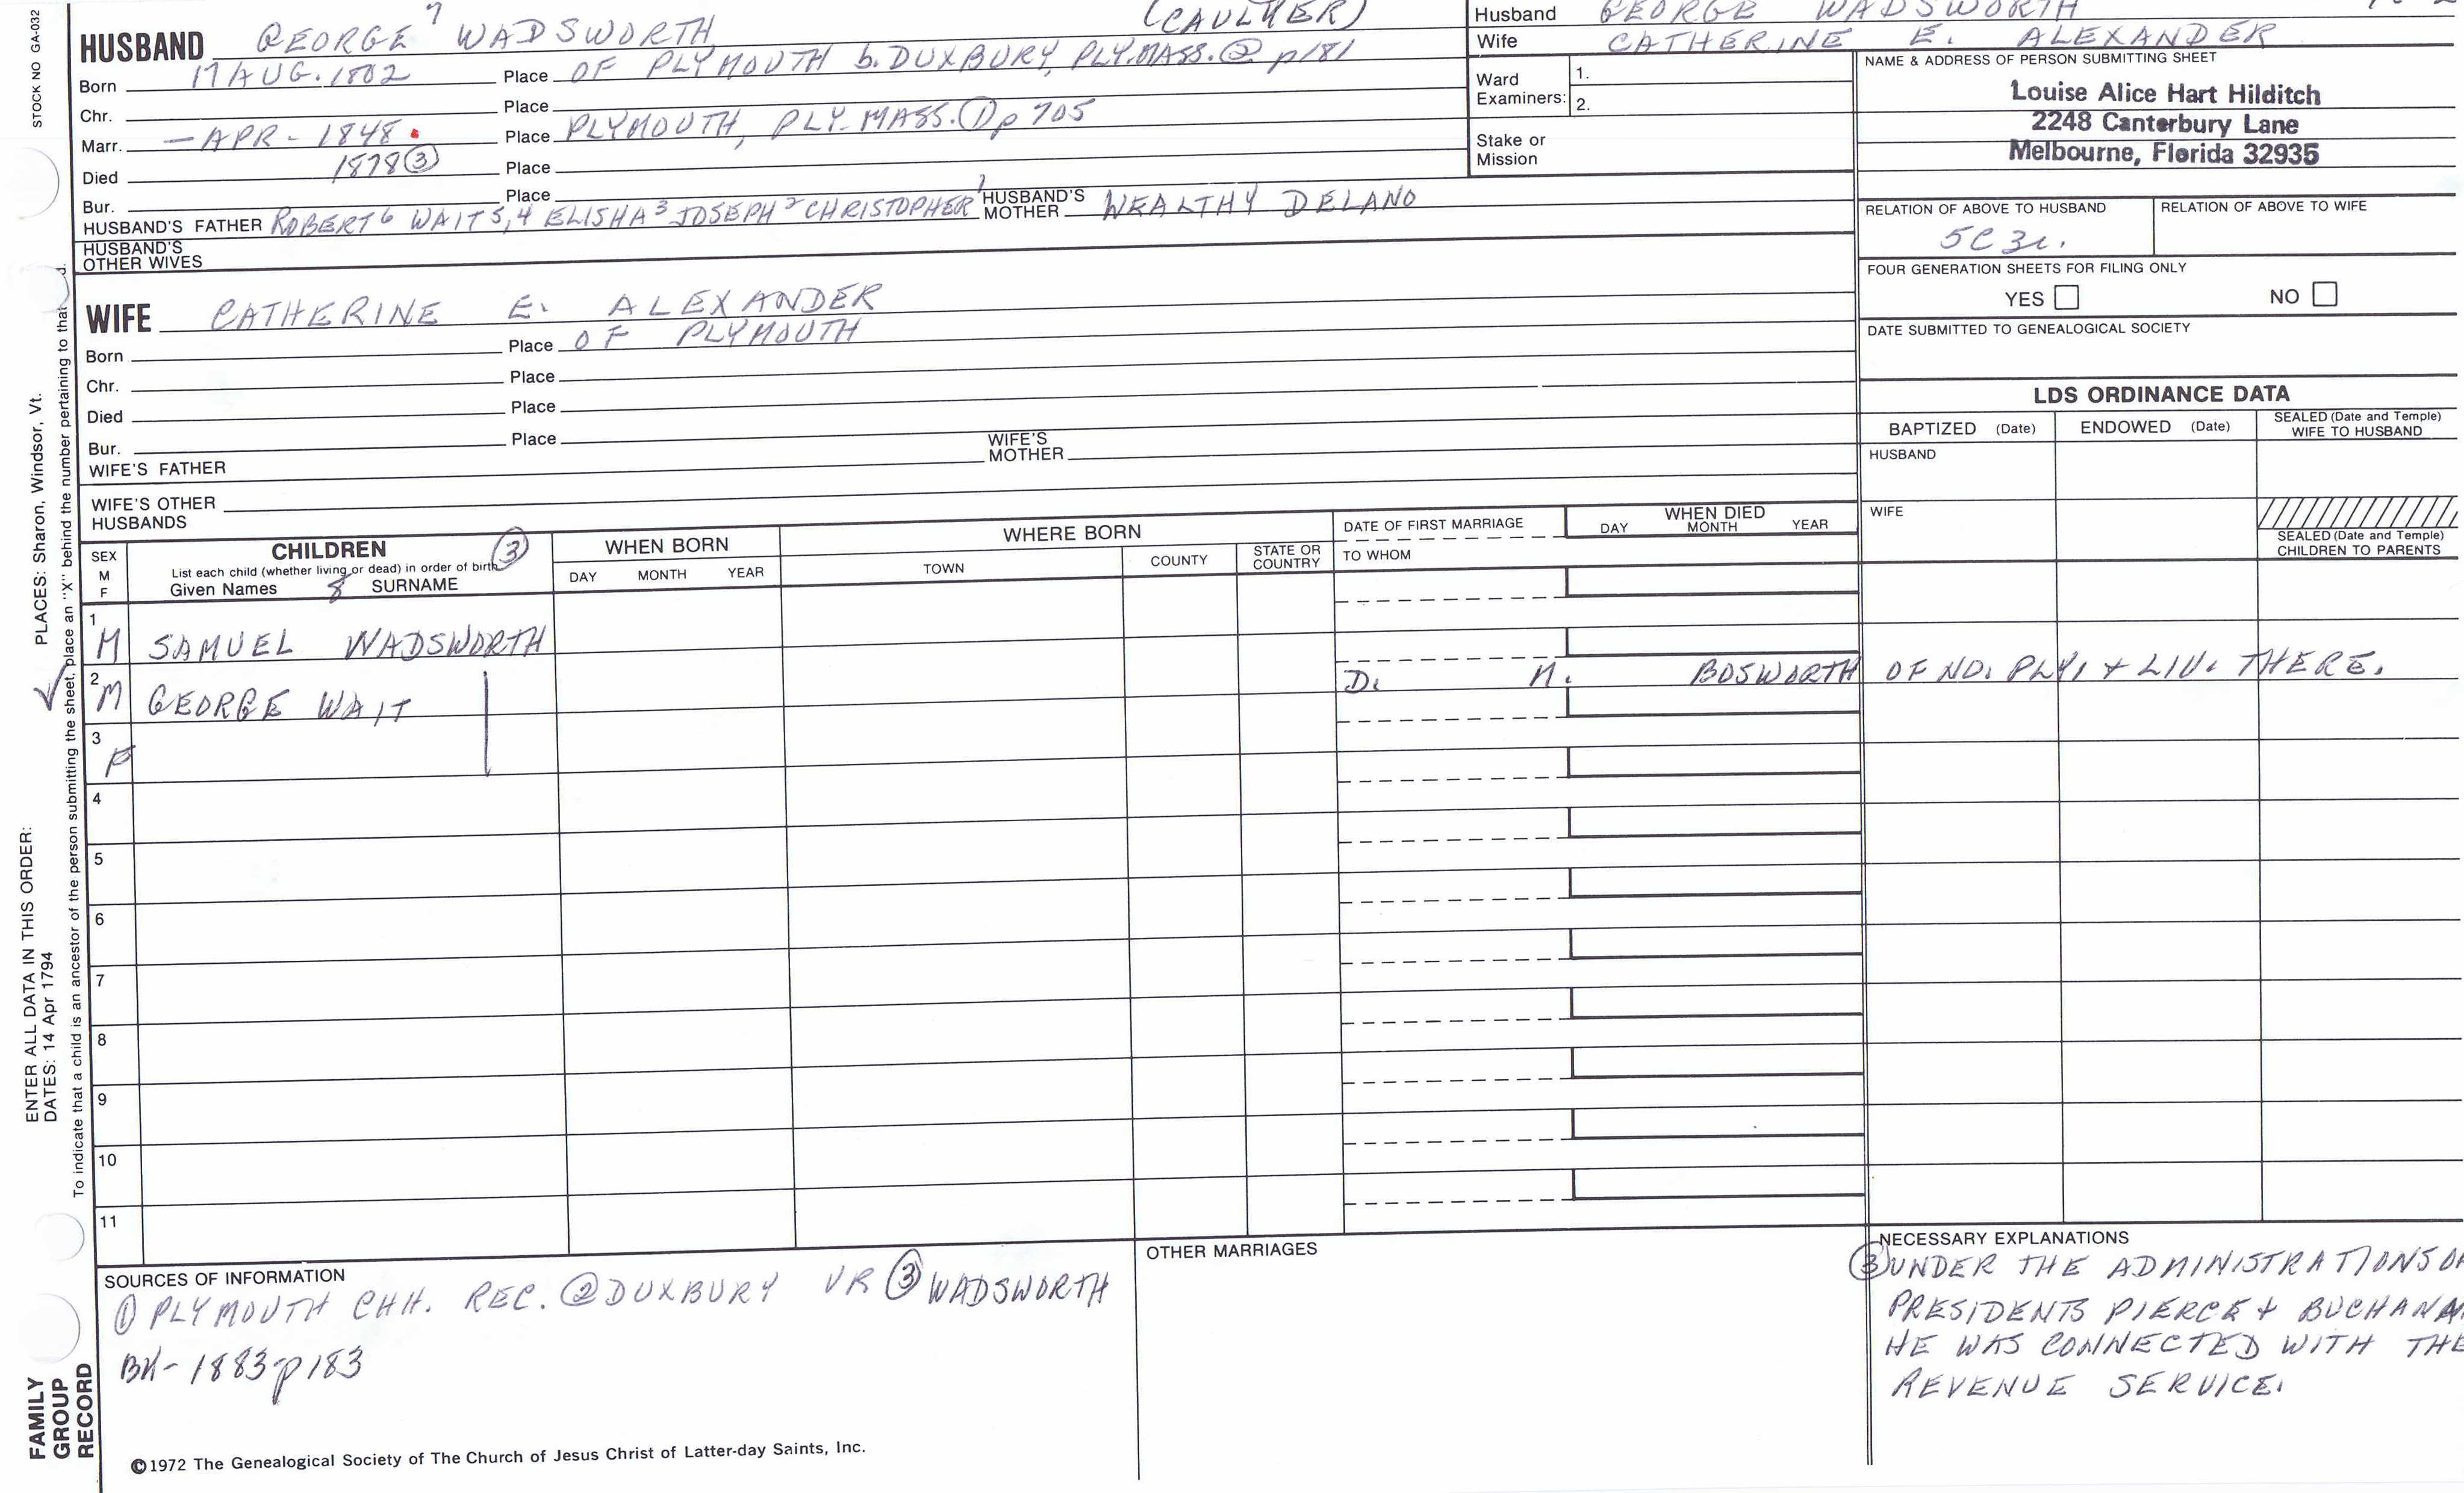 STOCK NO GA-032
HUSBAND GEORGE 7 WADSWORTH (CAULKER)
Born 17 AUG. 1802 Place OF PLYMOUTH b. DUXBURY, PLY. MASS. ② p181
Chr. Place
Marr. — APR - 1848. Place PLYMOUTH, PLY. MASS. ① p 705
Died 1878 ③ Place
Bur. Place
HUSBAND'S FATHER ROBERT 6 WAIT 5,4 ELISHA 3 JOSEPH 2 CHRISTOPHER 1 HUSBAND'S MOTHER WEALTHY DELANO
HUSBAND'S OTHER WIVES
WIFE CATHERINE E. ALEXANDER
Born Place OF PLYMOUTH
Chr. Place
Died Place
Bur. Place
WIFE'S FATHER WIFE'S MOTHER
WIFE'S OTHER HUSBANDS
Husband GEORGE WADSWORTH
Wife CATHERINE E. ALEXANDER
Ward Examiners: 1.
2.
Stake or Mission
NAME & ADDRESS OF PERSON SUBMITTING SHEET
Louise Alice Hart Hilditch
2248 Canterbury Lane
Melbourne, Florida 32935
RELATION OF ABOVE TO HUSBAND RELATION OF ABOVE TO WIFE
5C 3r.
FOUR GENERATION SHEETS FOR FILING ONLY
YES NO
DATE SUBMITTED TO GENEALOGICAL SOCIETY
LDS ORDINANCE DATA
BAPTIZED (Date) ENDOWED (Date) SEALED (Date and Temple) WIFE TO HUSBAND
HUSBAND
WIFE
SEALED (Date and Temple) CHILDREN TO PARENTS
SEX M F
CHILDREN ③
List each child (whether living or dead) in order of birth
Given Names & SURNAME
WHEN BORN
DAY MONTH YEAR
WHERE BORN
TOWN COUNTY STATE OR COUNTRY
DATE OF FIRST MARRIAGE
TO WHOM
WHEN DIED
DAY MONTH YEAR
1 M SAMUEL WADSWORTH
2 M GEORGE WAIT D. M. BOSWORTH OF NO. PLY. + LIV. THERE.
3 F
4
5
6
7
8
9
10
11
SOURCES OF INFORMATION
① PLYMOUTH CHH. REC. ② DUXBURY VR ③ WADSWORTH
BK- 1883 p183
OTHER MARRIAGES
NECESSARY EXPLANATIONS
③ UNDER THE ADMINISTRATIONS OF
PRESIDENTS PIERCE + BUCHANAN
HE WAS CONNECTED WITH THE
REVENUE SERVICE.
©1972 The Genealogical Society of The Church of Jesus Christ of Latter-day Saints, Inc.
FAMILY
GROUP
RECORD
ENTER ALL DATA IN THIS ORDER: PLACES: Sharon, Windsor, Vt.
DATES: 14 Apr 1794
To indicate that a child is an ancestor of the person submitting the sheet, place an "X" behind the number pertaining to that